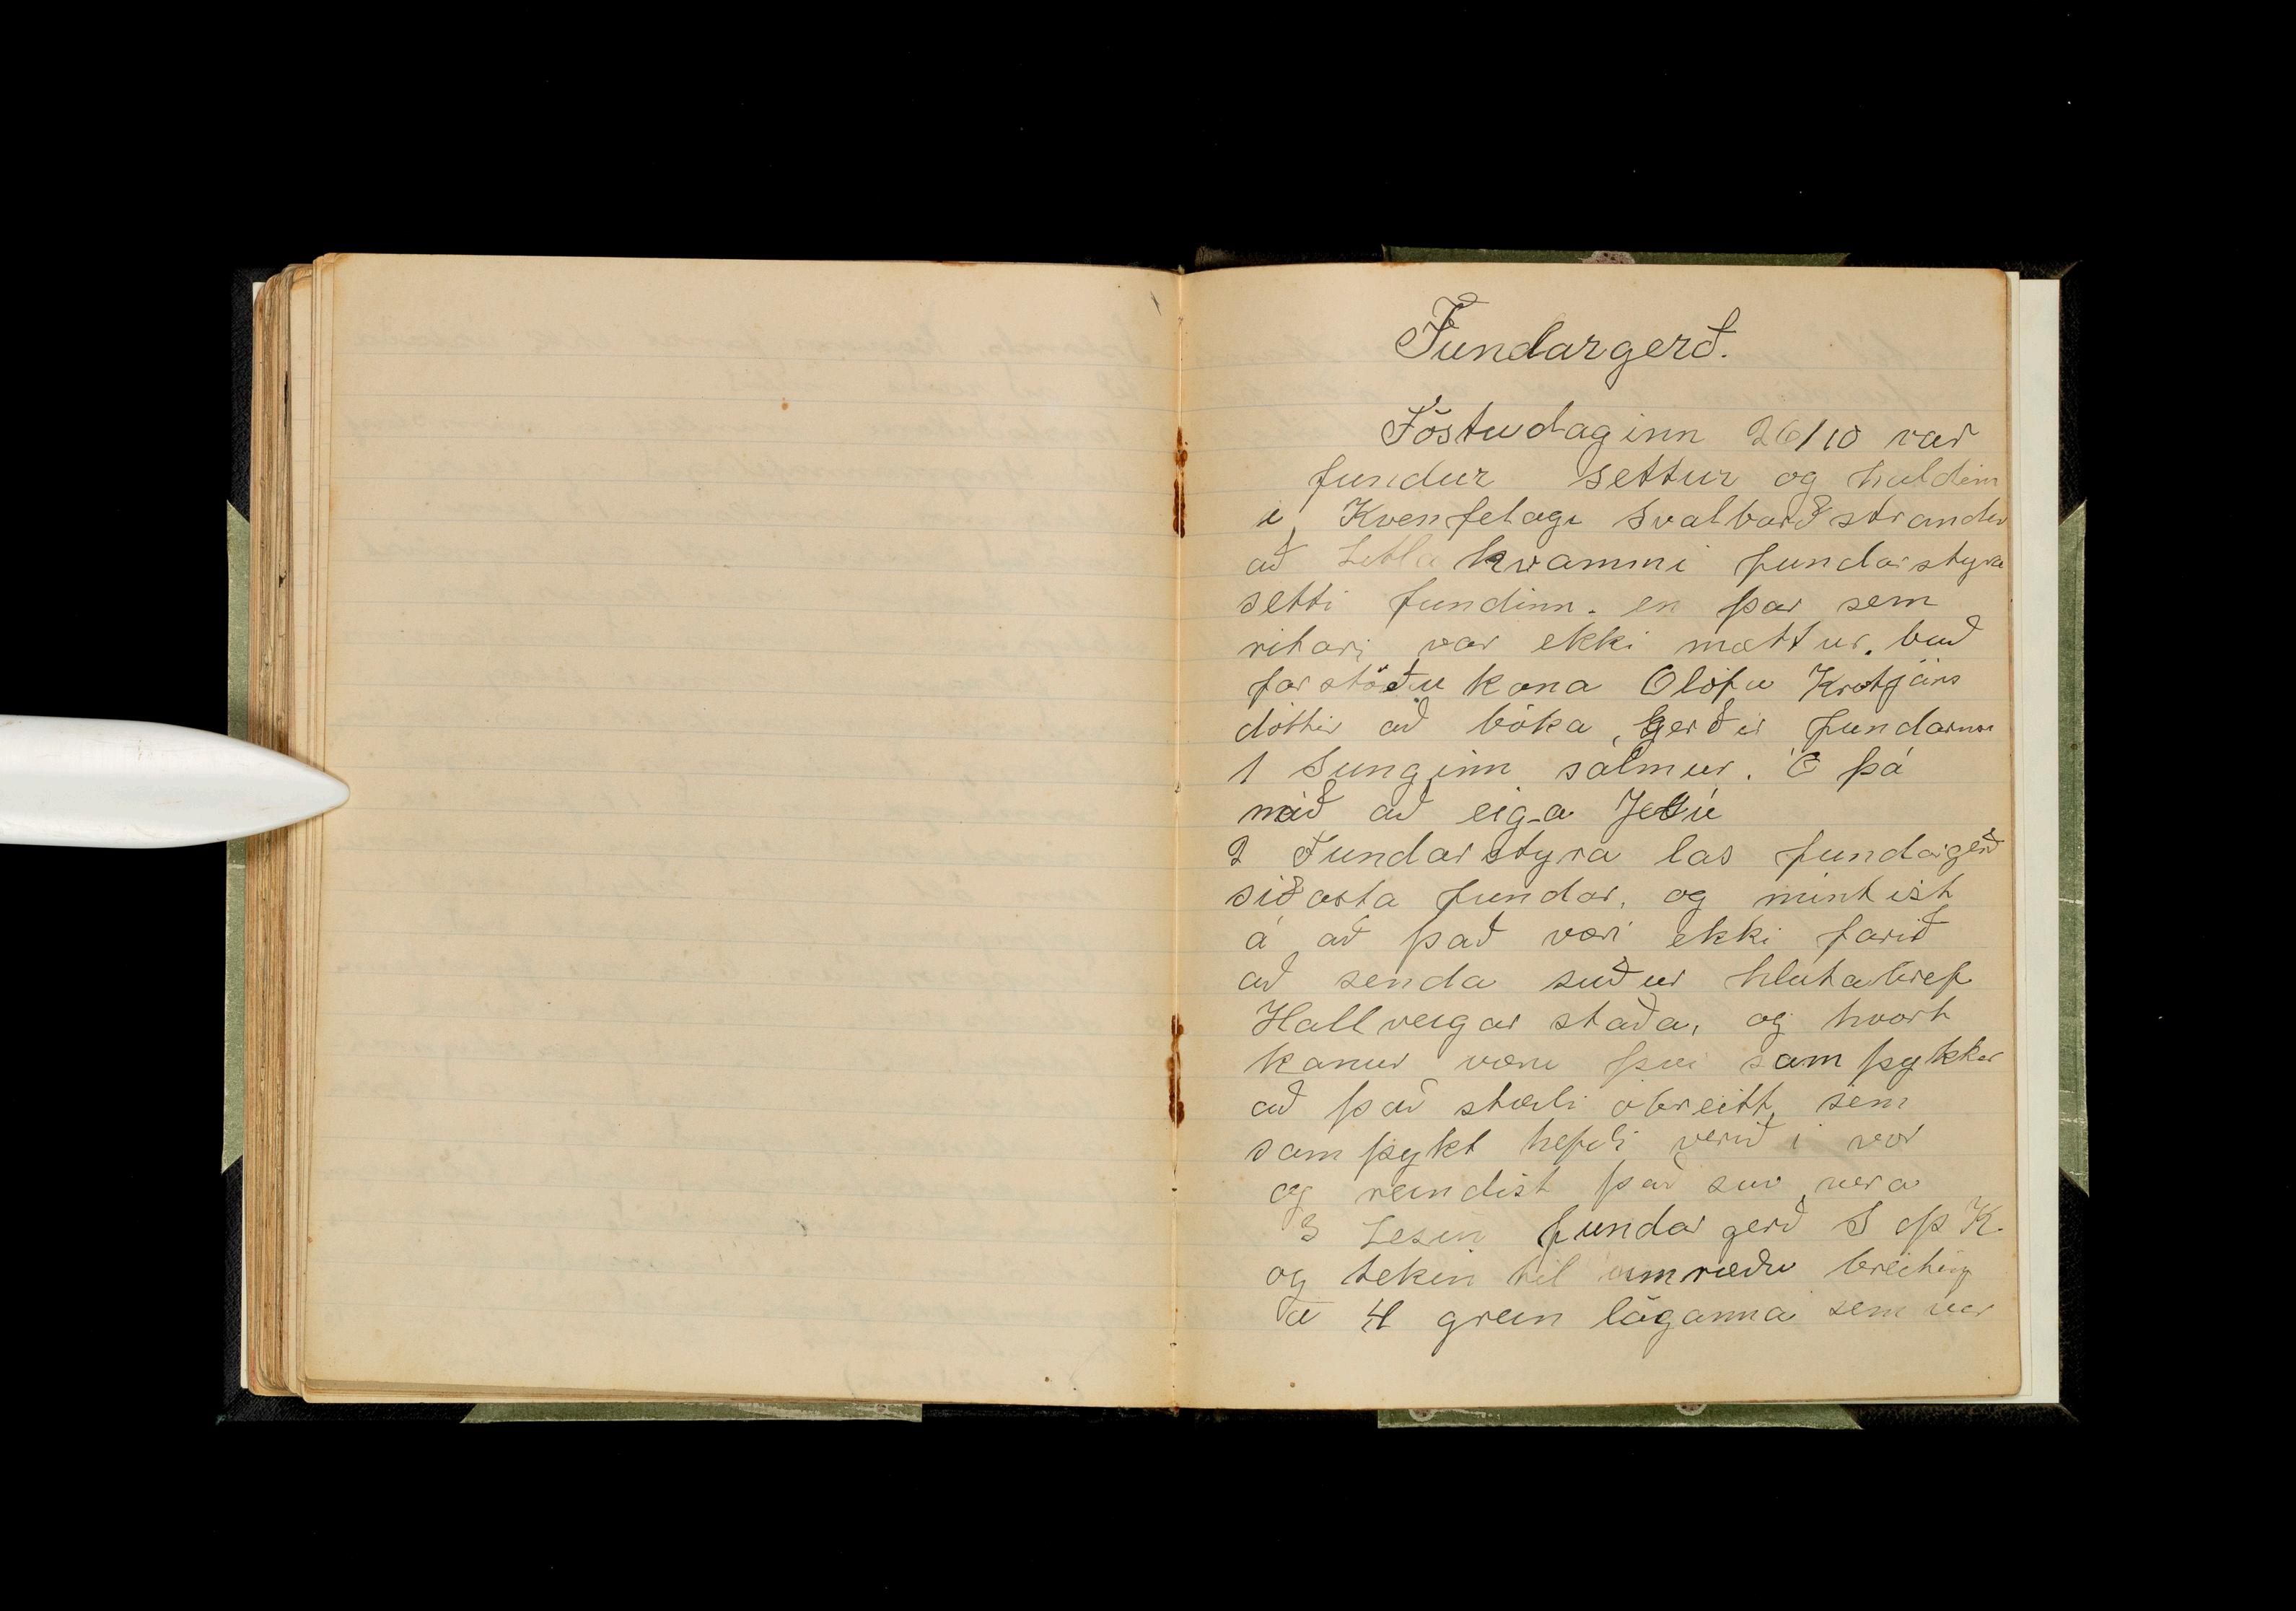 Fundargerð.
Föstudaginn 26/10 var
fundur settur og haldinn
í Kvenfelagi Svalbarðstrandar
að Litlahvammi fundarstýra
setti fundinn. en þar sem
ritari var ekki mættur. bað
forstöðukona Olöfu Kristjáns
dóttir að bóka, gerðir fundarins
1 Sunginn sálmur. Ó þá
náð að eiga Jesú
2 Fundarstyra las fundargerð
siðasta fundar, og mintist
á að það væri ekki farið
að senda suður hlutabref
Hallveigar staða, og hvort
konur væru því samþykkar
að það stæði óbreitt, sem
samþykt hefði verið i vor
og reindist það svo vera
3 Lesin fundargerð S þ K.
og tekin til umræðu breiting
á 4 grein láganna sem var